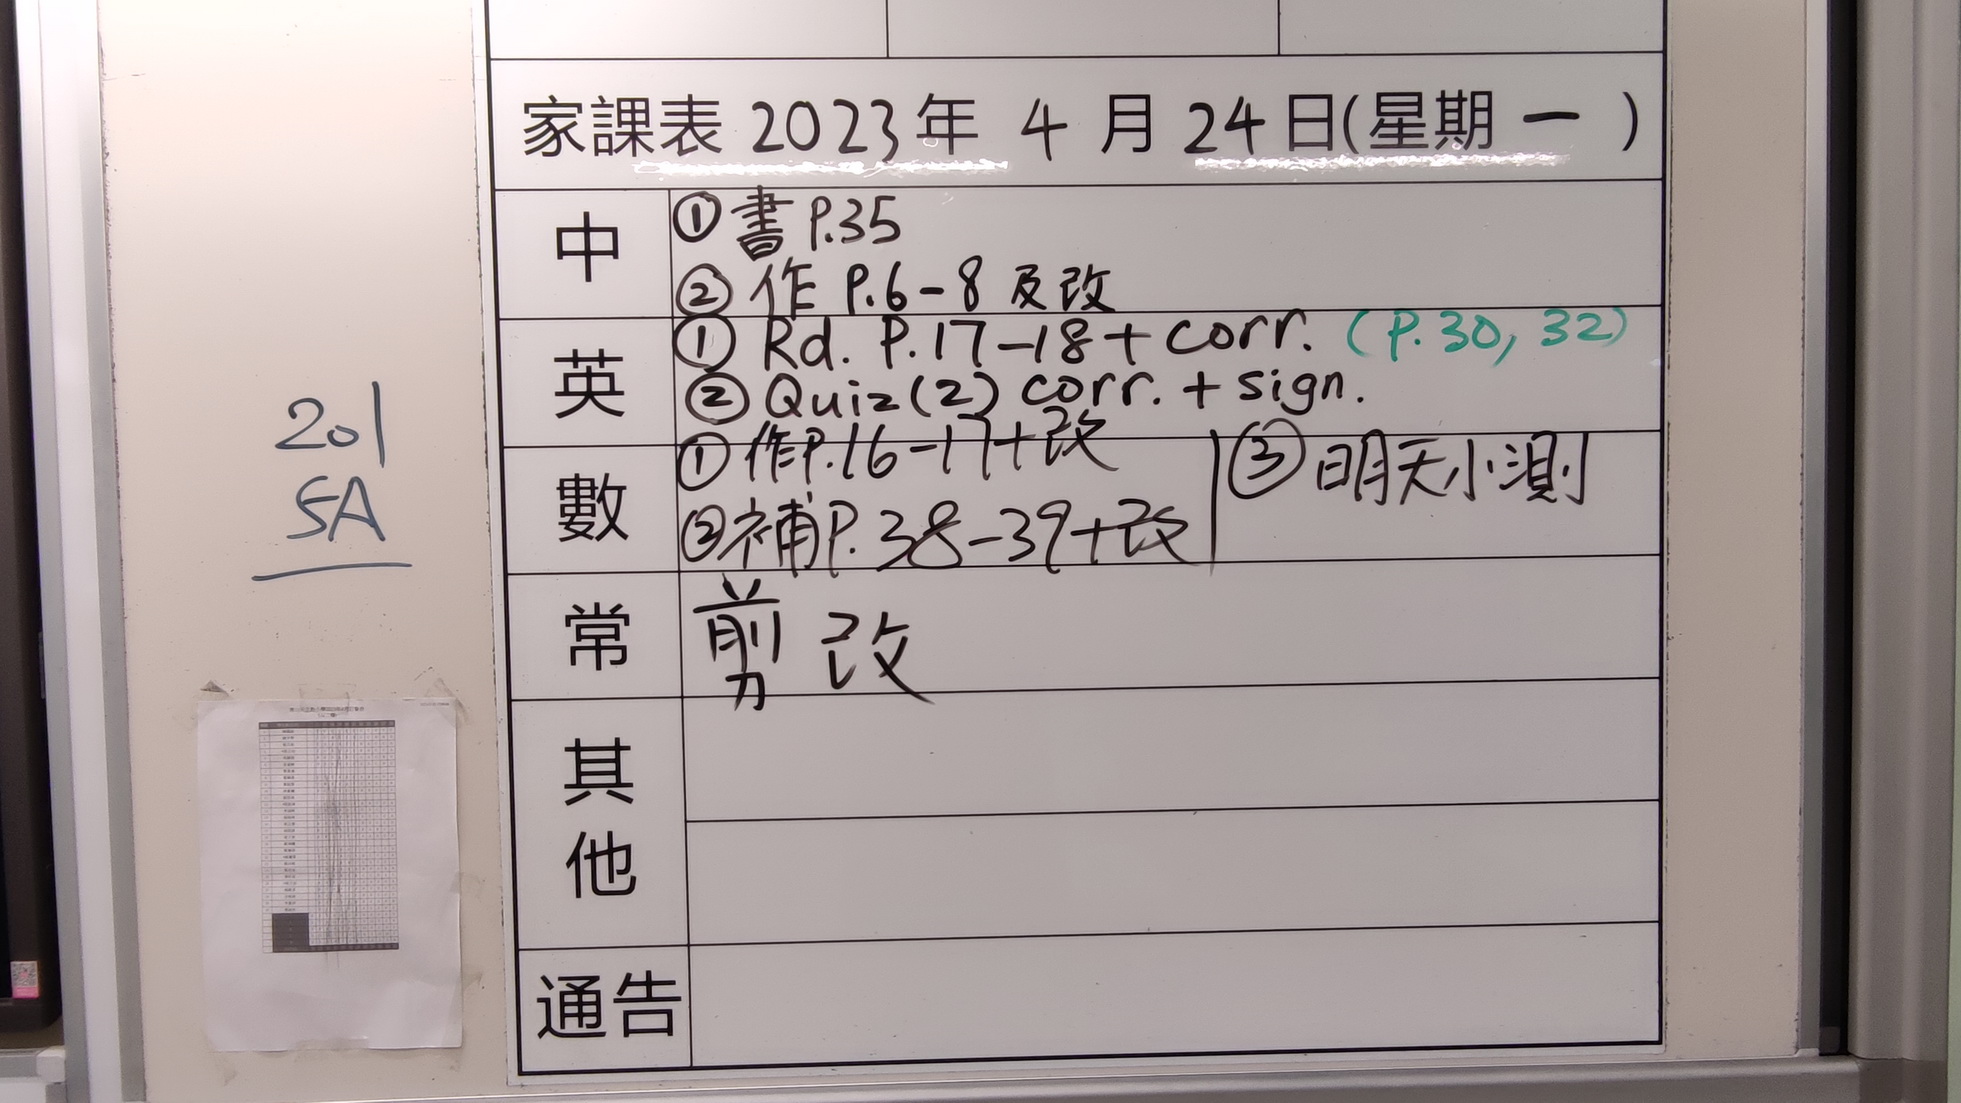 家課表 2023年 4月 24日(星期一)
中
① 書 P.35
② 作 P.6-8 及改
英
① Rd. P.17-18 + corr. (P.30, 32)
② Quiz(2) corr. + sign.
數
① 作P.16-17+改
② 補P.38-39+改
③ 明天小測
常
剪 改
其他
通告
201
5A